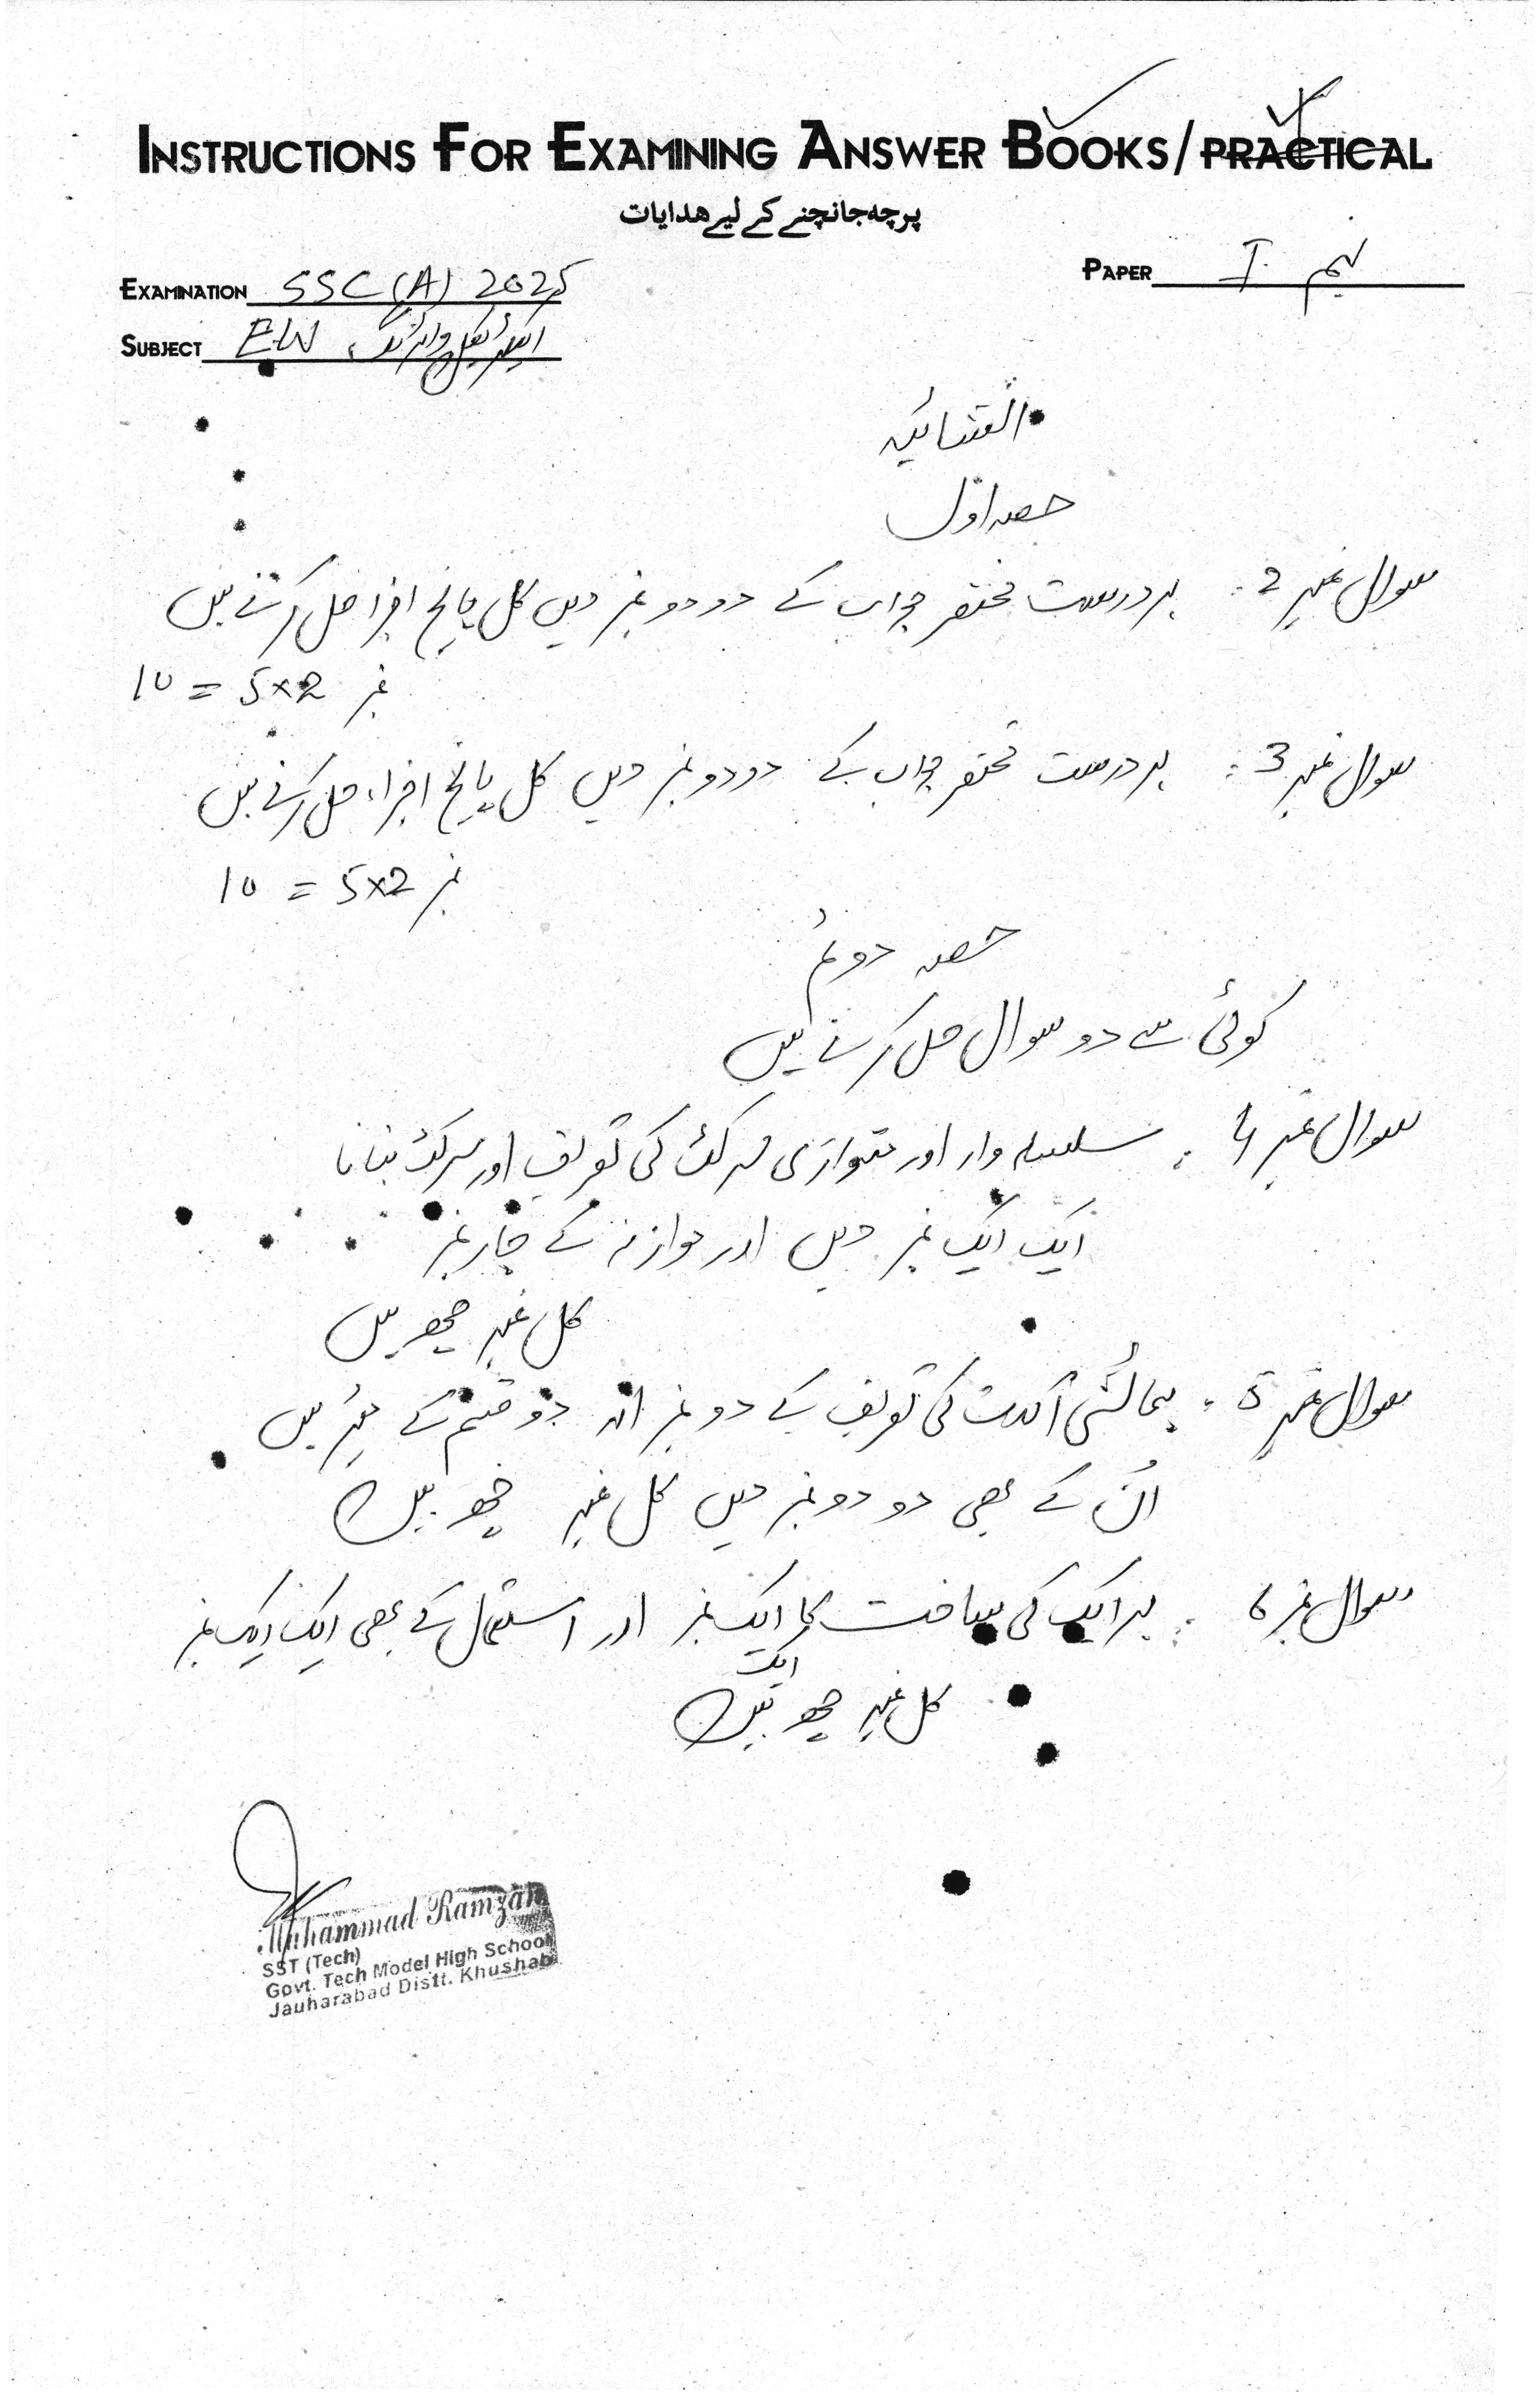 INSTRUCTIONS FOR EXAMINING ANSWER BOOKS/PRACTICAL
پرچہ جانچنے کے لیے ھدایات
EXAMINATION SSC (A) 2025
PAPER I نہم
SUBJECT EW الیکٹریکل وائرنگ
انشائیہ
حصہ اول
سوال نمبر 2: ہر درست مختصر جواب کے دو دو نمبر دیں کل پانچ اجزا حل کرنے ہیں
نمبر 5×2 = 10
سوال نمبر 3: ہر درست مختصر جواب کے دو دو نمبر دیں کل پانچ اجزاء حل کرنے ہیں
نمبر 5×2 = 10
حصہ دوئم
کوئی سے دو سوال حل کرنے ہیں
سوال نمبر 4: سلسلہ وار اور متوازی سرکٹ کی تعریف اور سرکٹ بنانا
ایک ایک نمبر دیں اور موازنہ کے چار نمبر
کل نمبر چھ ہیں
سوال نمبر 5: پیمائشی آلات کی تعریف کے دو نمبر اور دو قسم کے ہیں
ان کے بھی دو دو نمبر دیں کل نمبر چھ ہیں
سوال نمبر 6: ہر ایک کی ساخت کا ایک ایک نمبر اور استعمال کے بھی ایک ایک نمبر
کل نمبر چھ ہیں
Muhammad Ramzan
SST (Tech)
Govt. Tech Model High School
Jauharabad Distt. Khushab